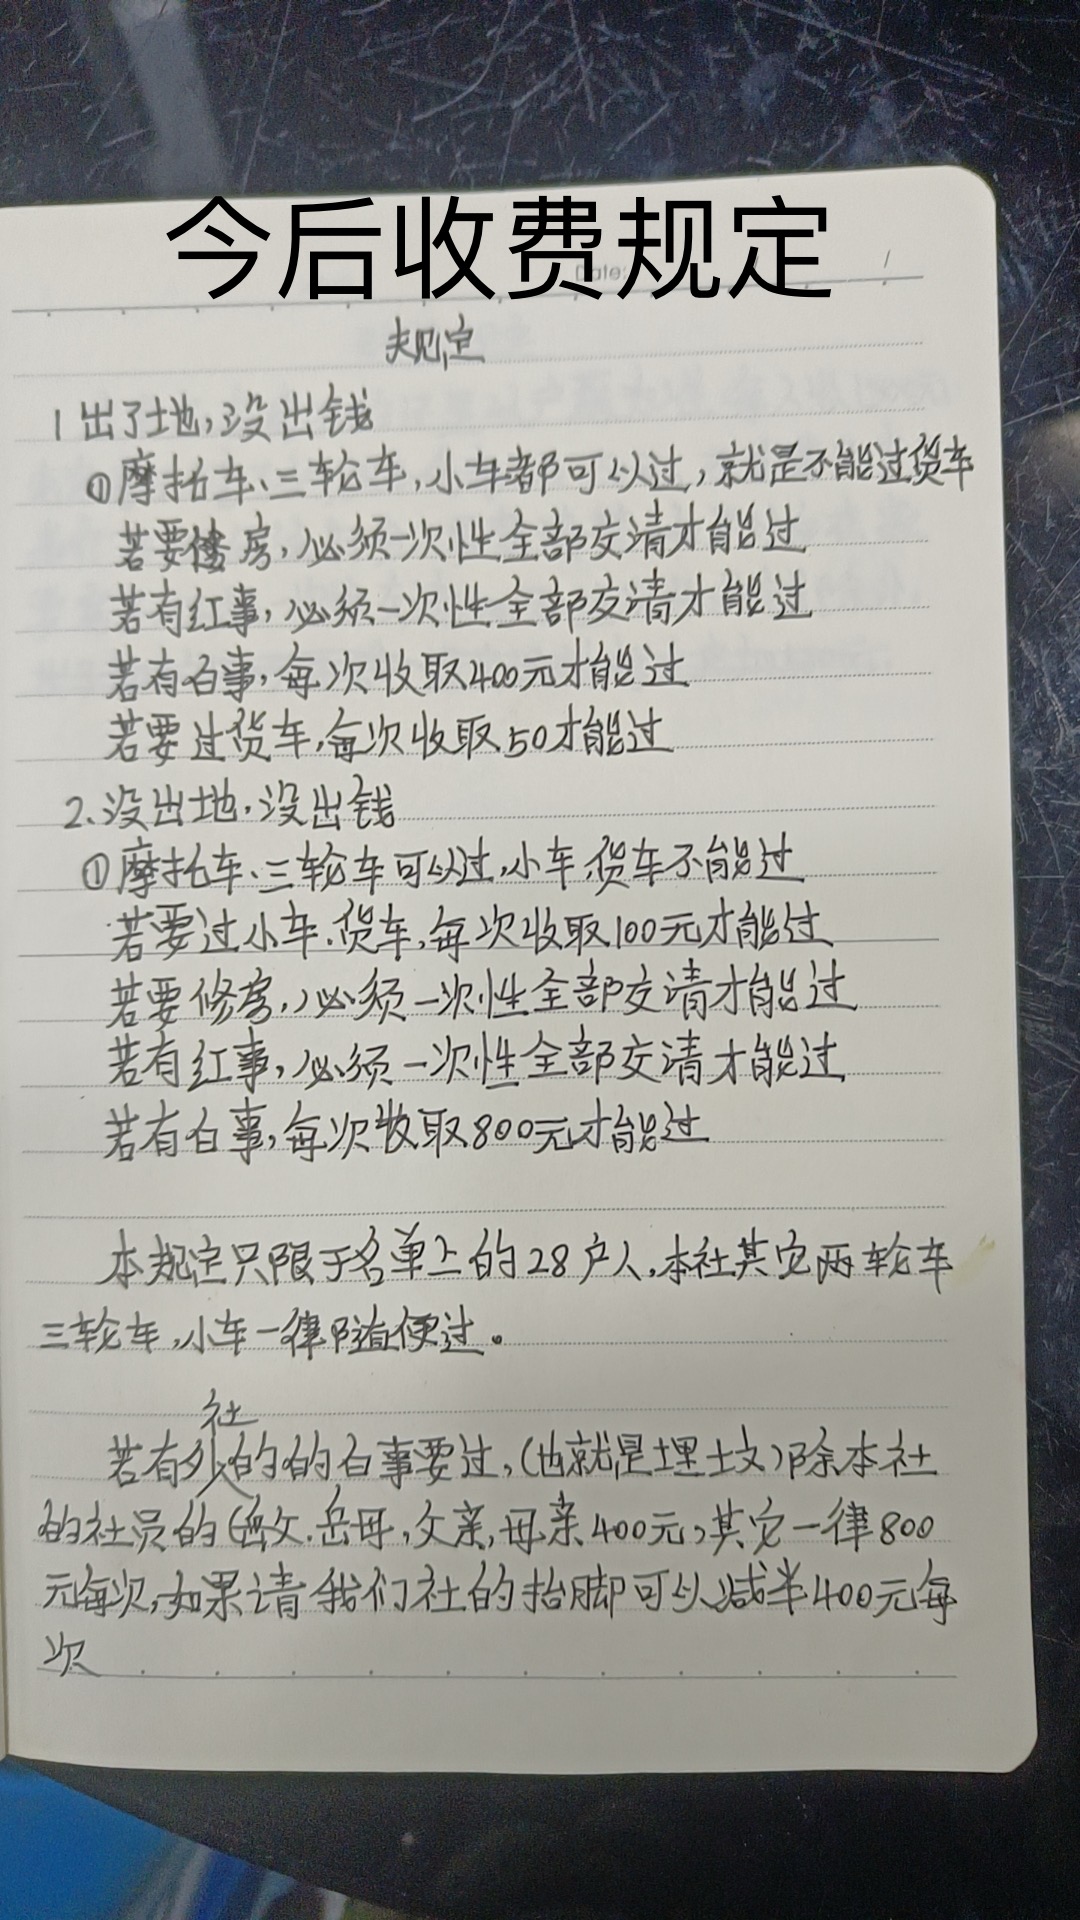 今后收费规定
Date:
规定
1出了地,没出钱
①摩托车、三轮车,小车都可以过,就是不能过货车
若要修房,必须一次性全部交清才能过
若有红事,必须一次性全部交请才能过
若有白事,每次收取400元才能过
若要过货车,每次收取50才能过
2.没出地,没出钱
①摩托车、三轮车可以过,小车.货车不能过
若要过小车.货车,每次收取100元才能过
若要修房,必须一次性全部交清才能过
若有红事,必须一次性全部交清才能过
若有白事,每次收取800元才能过
本规定只限于名单上的28户人,本社其它两轮车
三轮车,小车一律随便过。
社
若有外的的白事要过,(也就是埋土坟)除本社
的社员的(岳父.岳母,父亲,母亲400元,其它一律800
元每次,如果请我们社的抬脚可以减半400元每
次